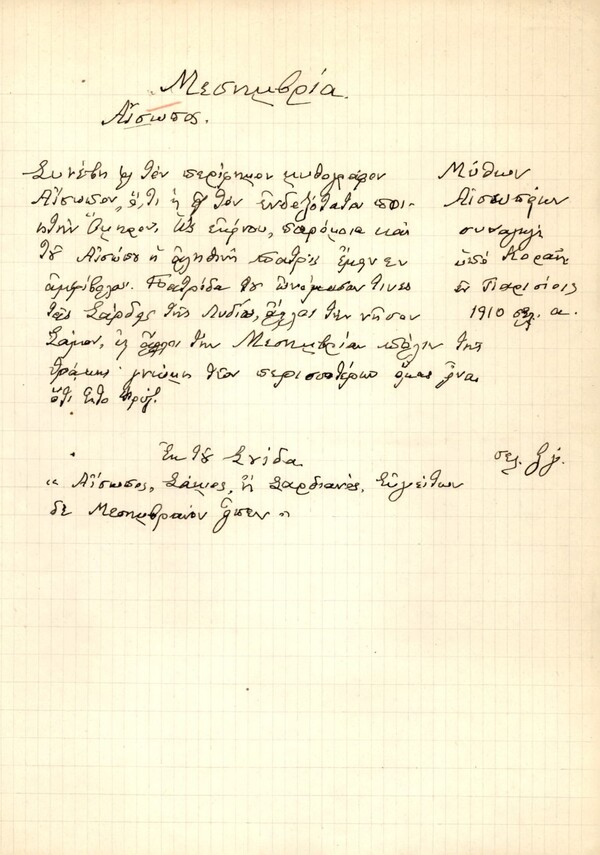 Μεσημβρία.
Αἴσωπος.
Συνέβη εἰς τὸν περίφημον μυθογράφον
Αἴσωπον, ὅ,τι ἡ εἰς τὸν ἐνδοξότατον ποι-
ητὴν Ὅμηρον. Ὡς ἐκείνου, παρόμοια καὶ
τοῦ Αἰσώπου ἡ ἀληθινὴ πατρὶς ἔμεινεν
ἀμφίβολος. Πατρίδα του ὠνόμασαν τινες
τὰς Σάρδεις τῆς Λυδίας, ἄλλοι τὴν νῆσον
Σάμον, καὶ ἄλλοι τὴν Μεσημβρίαν πόλιν τῆς
Θράκης· γνώμη τῶν περισσοτέρων ὅμως εἶναι
ὅτι ἦτο Φρύξ.
Μύθων
Αἰσωπείων
συναγωγὴ
ὑπὸ Κοραῆ
ἐν Παρισίοις
1910 σελ. α.
Ἐκ τοῦ Σουίδα
σελ.
« Αἴσωπος, Σάμιος, ἢ Σαρδιανός, Εὐγείτων
δὲ Μεσημβριανὸν εἶπεν »